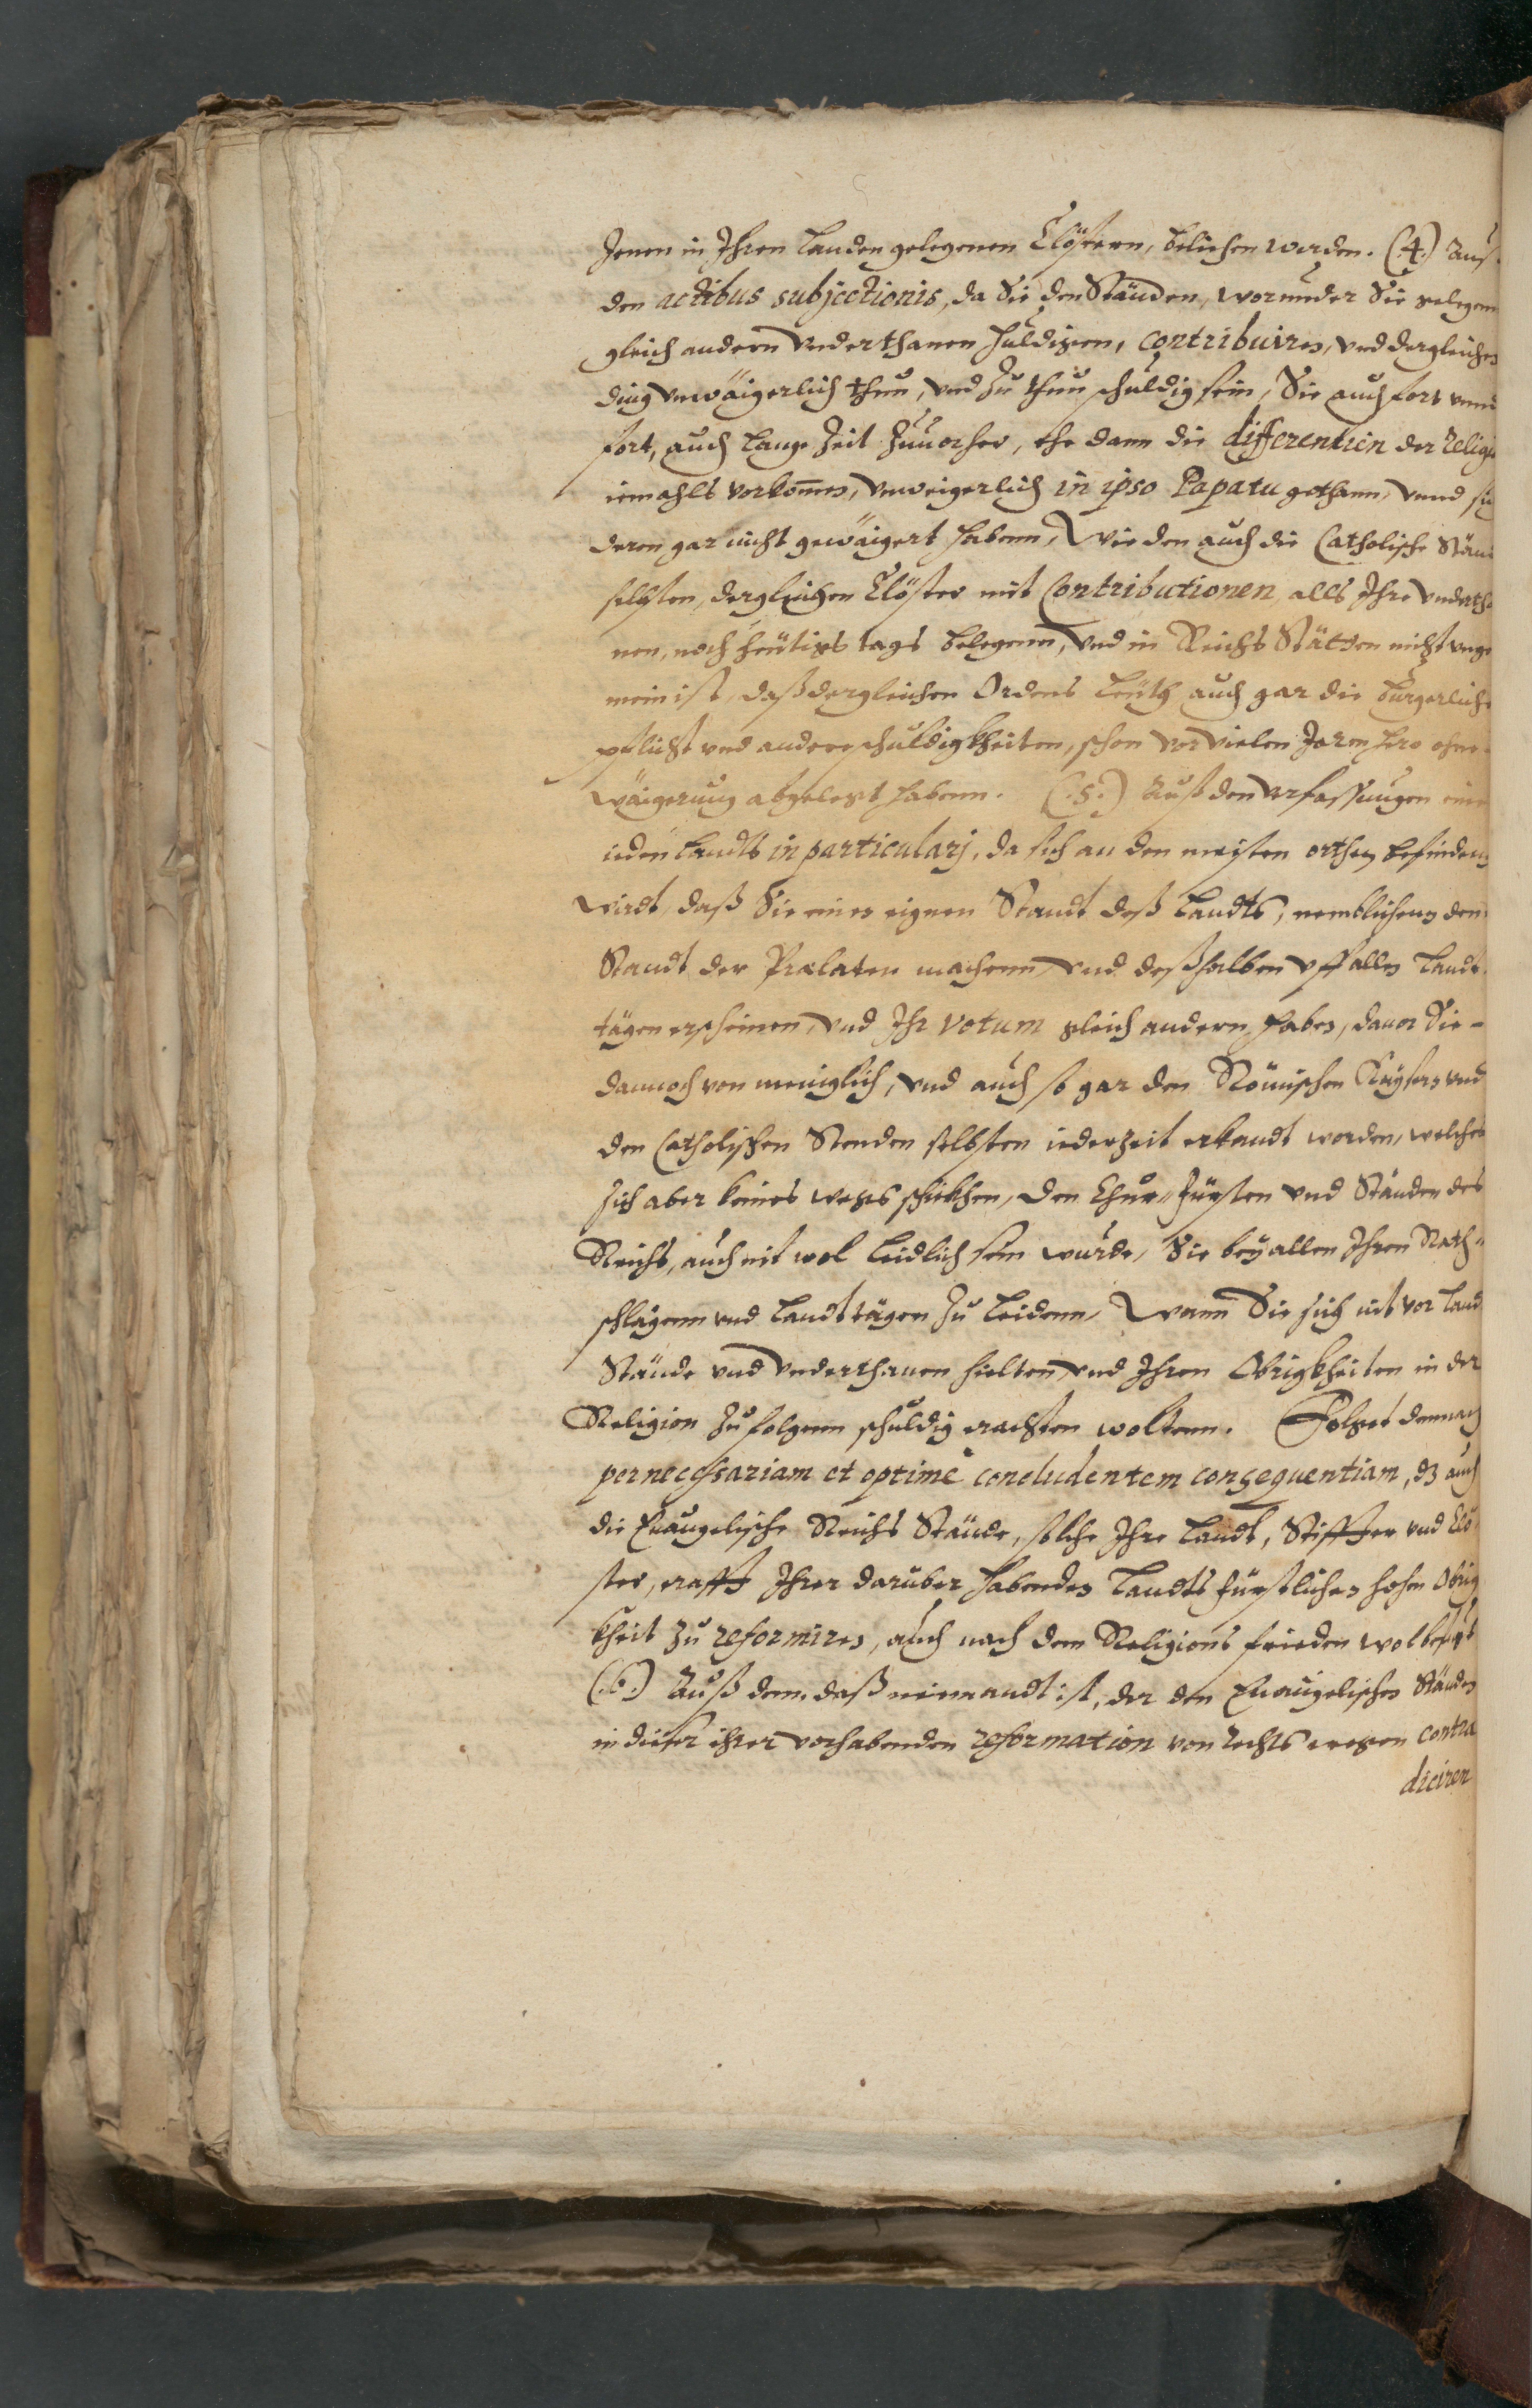 Jenen in Ihren Landen gelegenen Clöstern, belichen worden. (4.) Auß
den actibus subjectionis, da Sie den Ständen, worunder Sie gelegen
gleich andern Underthanen huldigen, contribuiren, und dergleichen
ding unwäigerlich thun, und zu thun schuldig sein, Sie auch fort unnd
fort, auch lange Zeit zuvorher, ehe dann die differentien der Relig
iemahls vorkom̄en, unweigerlich in ipso Papatu gethann, unnd sich
deren gar nicht gewäigert habenn, Wie den auch die Catholische Stän
selbsten, dergleichen Clöster mit Contributionen, alls Ihre Undertha
nen, noch heutigs tags belegenn, und in Reichs Stätten nicht unge
mein ist, daß dergleichen Ordens leuth auch gar die burgerliche
pflicht und andere schuldigkheiten, schon vor vielen Jaren hero ohne
wäigerung abgelegt habenn. (5.) Auß den verfassungen eines
ieden Landts in particularj, da sich an den meisten orthen befinden
wirdt, daß Sie einen eignen Standt deß Landts, nemblichenn den
Standt der Prælaten machenn, und deßhalben uff allen Landt
tägen erscheinen, und Ihr votum gleich andern haben, davor Sie
dannoch von meniglich, und auch so gar den Römischen Kaysern und
den Catholischen Stenden selbsten iederzeit erkandt worden, welches
sich aber keines wegs schikhen, den Chur- Fürsten und Ständen des
Reichs, auch nit wol leidlich sein wurde, Sie bey allen Ihren Rath-
schlägenn und Landttägen zu leidenn, Wann Sie sich nit vor Land
Stände und Underthanen hieltenn, und Ihren Obrigkheiten in der
Religion zu folgenn schuldig erachten woltenn. Folget demnach
per necessariam et optimè concludentem consequentiam, dz auch
die Evangelische Reichs Stände, solche Ihre Landt, Stiffter und Clö
ster, crafft Ihrer daruber habenden Landts Fürstlichen hohen Obrig
kheit zu reformiren, auch nach dem Religions frieden wol befugt
(6.) Auß dem, daß niemandt ist, der den Evangelischen Ständen
in dieser ihrer vorhabenden reformation von Rechts wegen contra
diciren